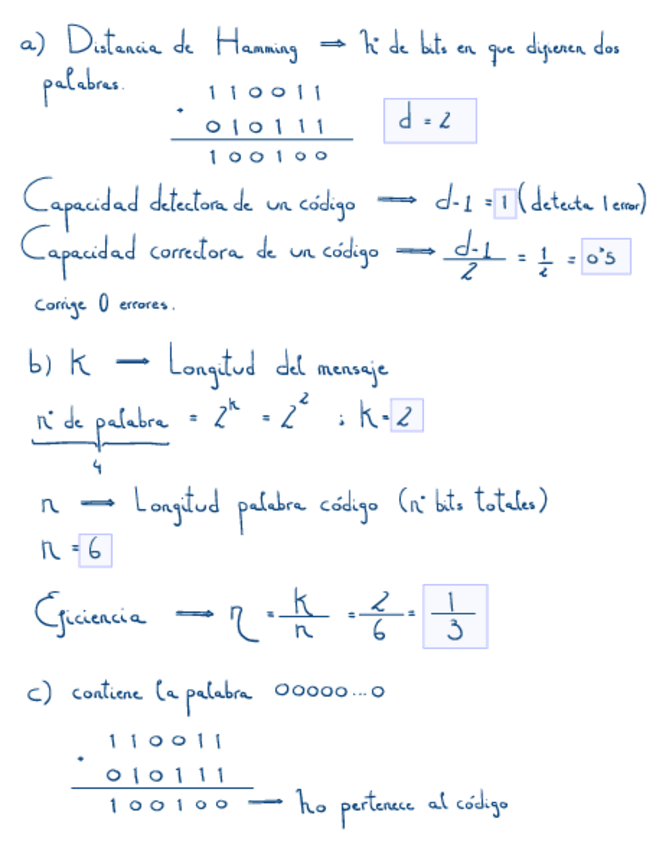 a) Distancia de Hamming ⇒ nº de bits en que difieren dos
palabras.
1 1 0 0 1 1
·
0 1 0 1 1 1
1 0 0 1 0 0
d = 2
Capacidad detectora de un código ⟶ d-1 = 1 (detecta 1 error)
Capacidad correctora de un código ⟶ d-1/2 = 1/2 = 0'5
corrige 0 errores.
b) K ⟶ Longitud del mensaje
nº de palabra = 2^k = 2^2 ; k = 2
4
n ⟶ Longitud palabra código (nº bits totales)
n = 6
Eficiencia ⟶ η = k/n = 2/6 = 1/3
c) contiene la palabra 00000...0
1 1 0 0 1 1
·
0 1 0 1 1 1
1 0 0 1 0 0 — no pertenece al código